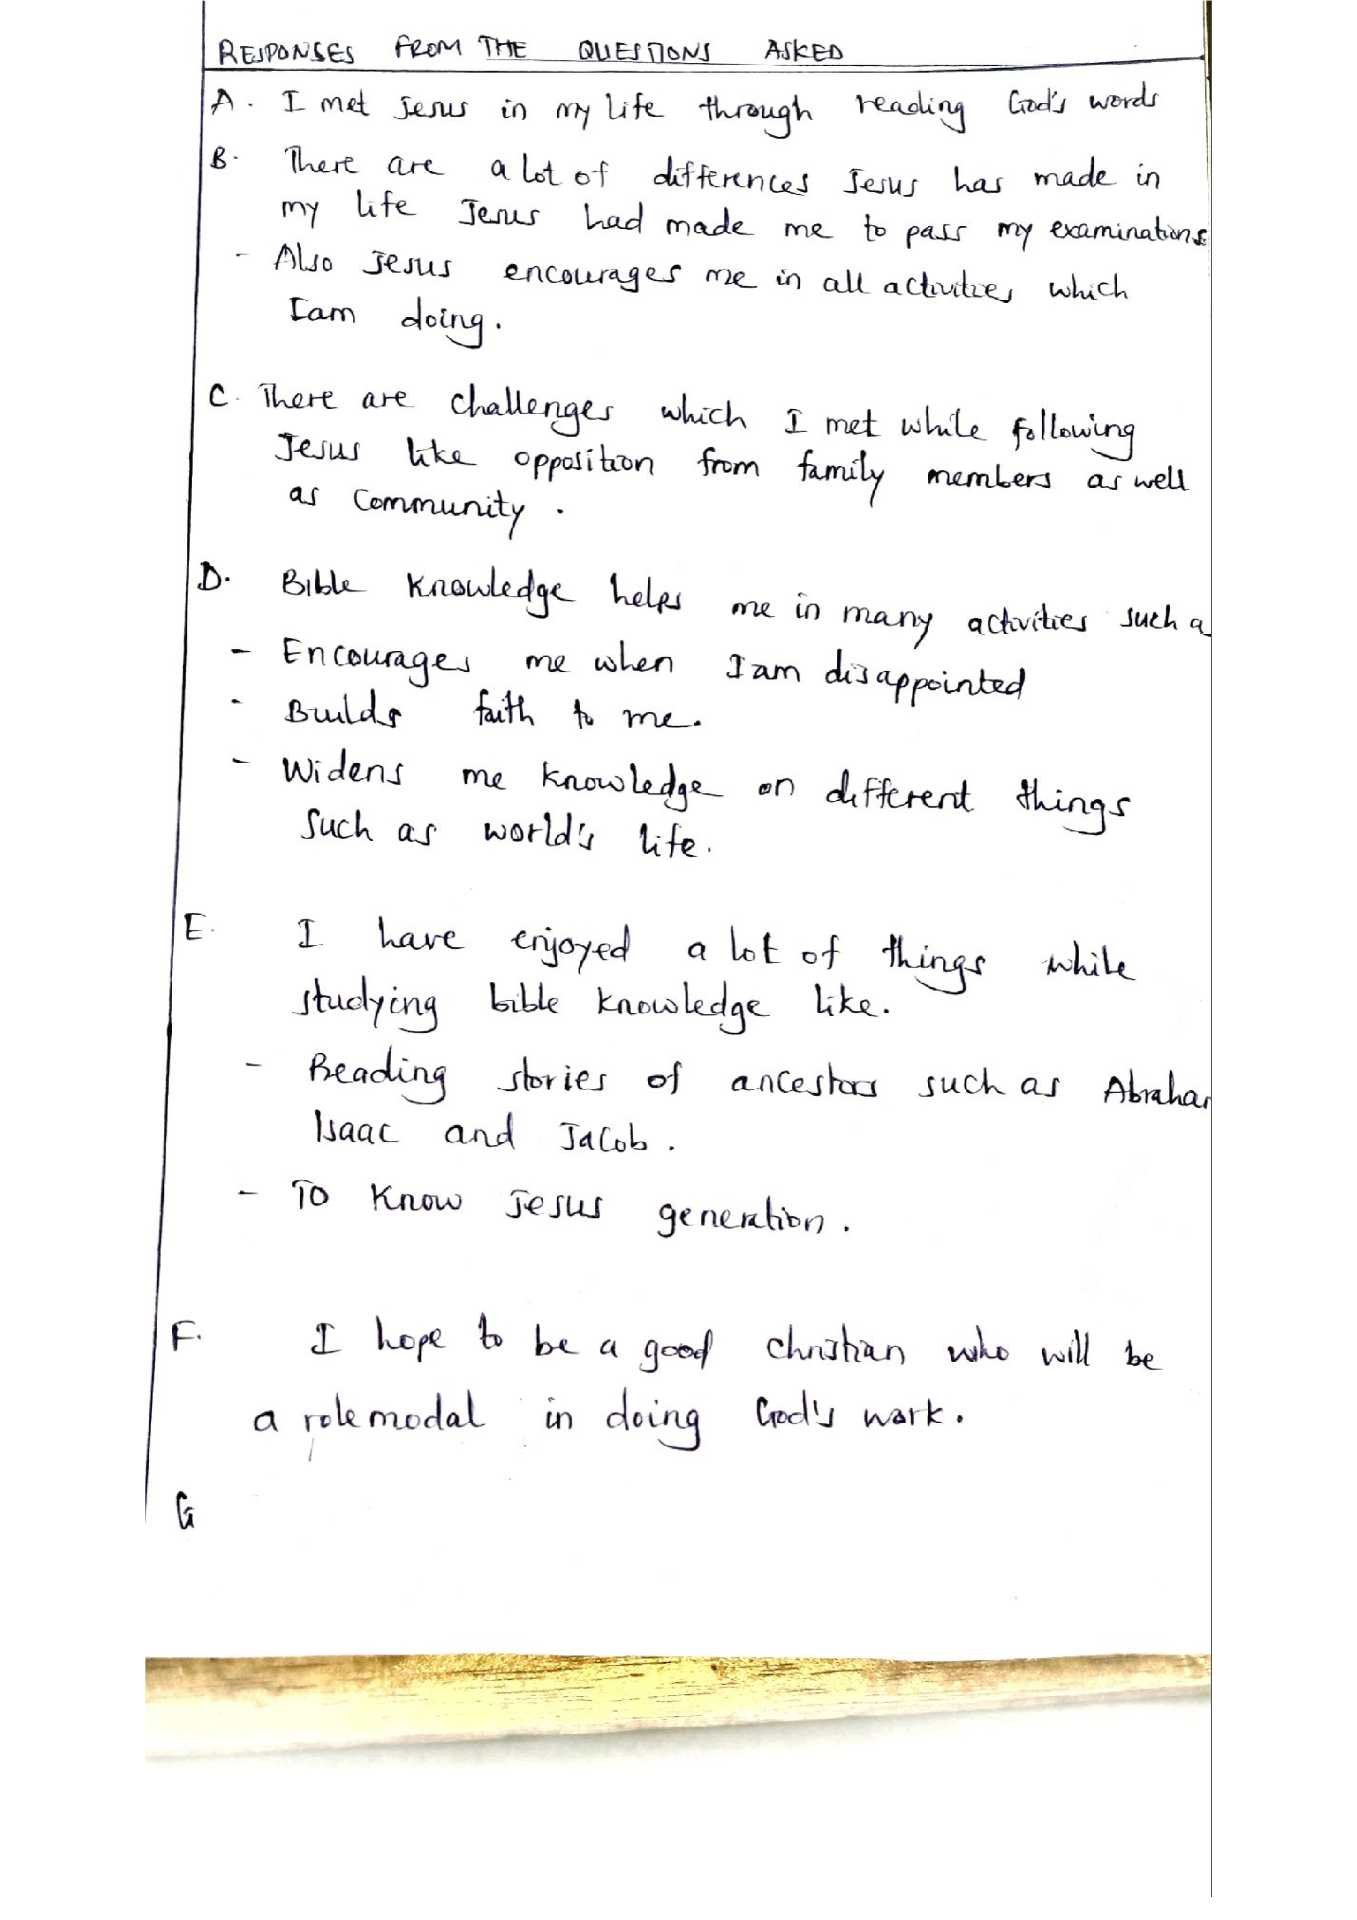 RESPONSES FROM THE QUESTIONS ASKED
A. I met Jesus in my life through reading God's words
B. There are a lot of differences Jesus has made in
my life Jesus had made me to pass my examinations
- Also Jesus encourages me in all activities which
I am doing.
C. There are challenges which I met while following
Jesus like opposition from family members as well
as community.
D. Bible knowledge helps me in many activities such a
- Encourages me when I am disappointed
- Builds faith to me.
- Widens me knowledge on different things
such as world's life.
E. I have enjoyed a lot of things while
studying bible knowledge like.
- Reading stories of ancestors such as Abraha
Isaac and Jacob.
- To know Jesus generation.
F. I hope to be a good christian who will be
a role modal in doing God's work.
G